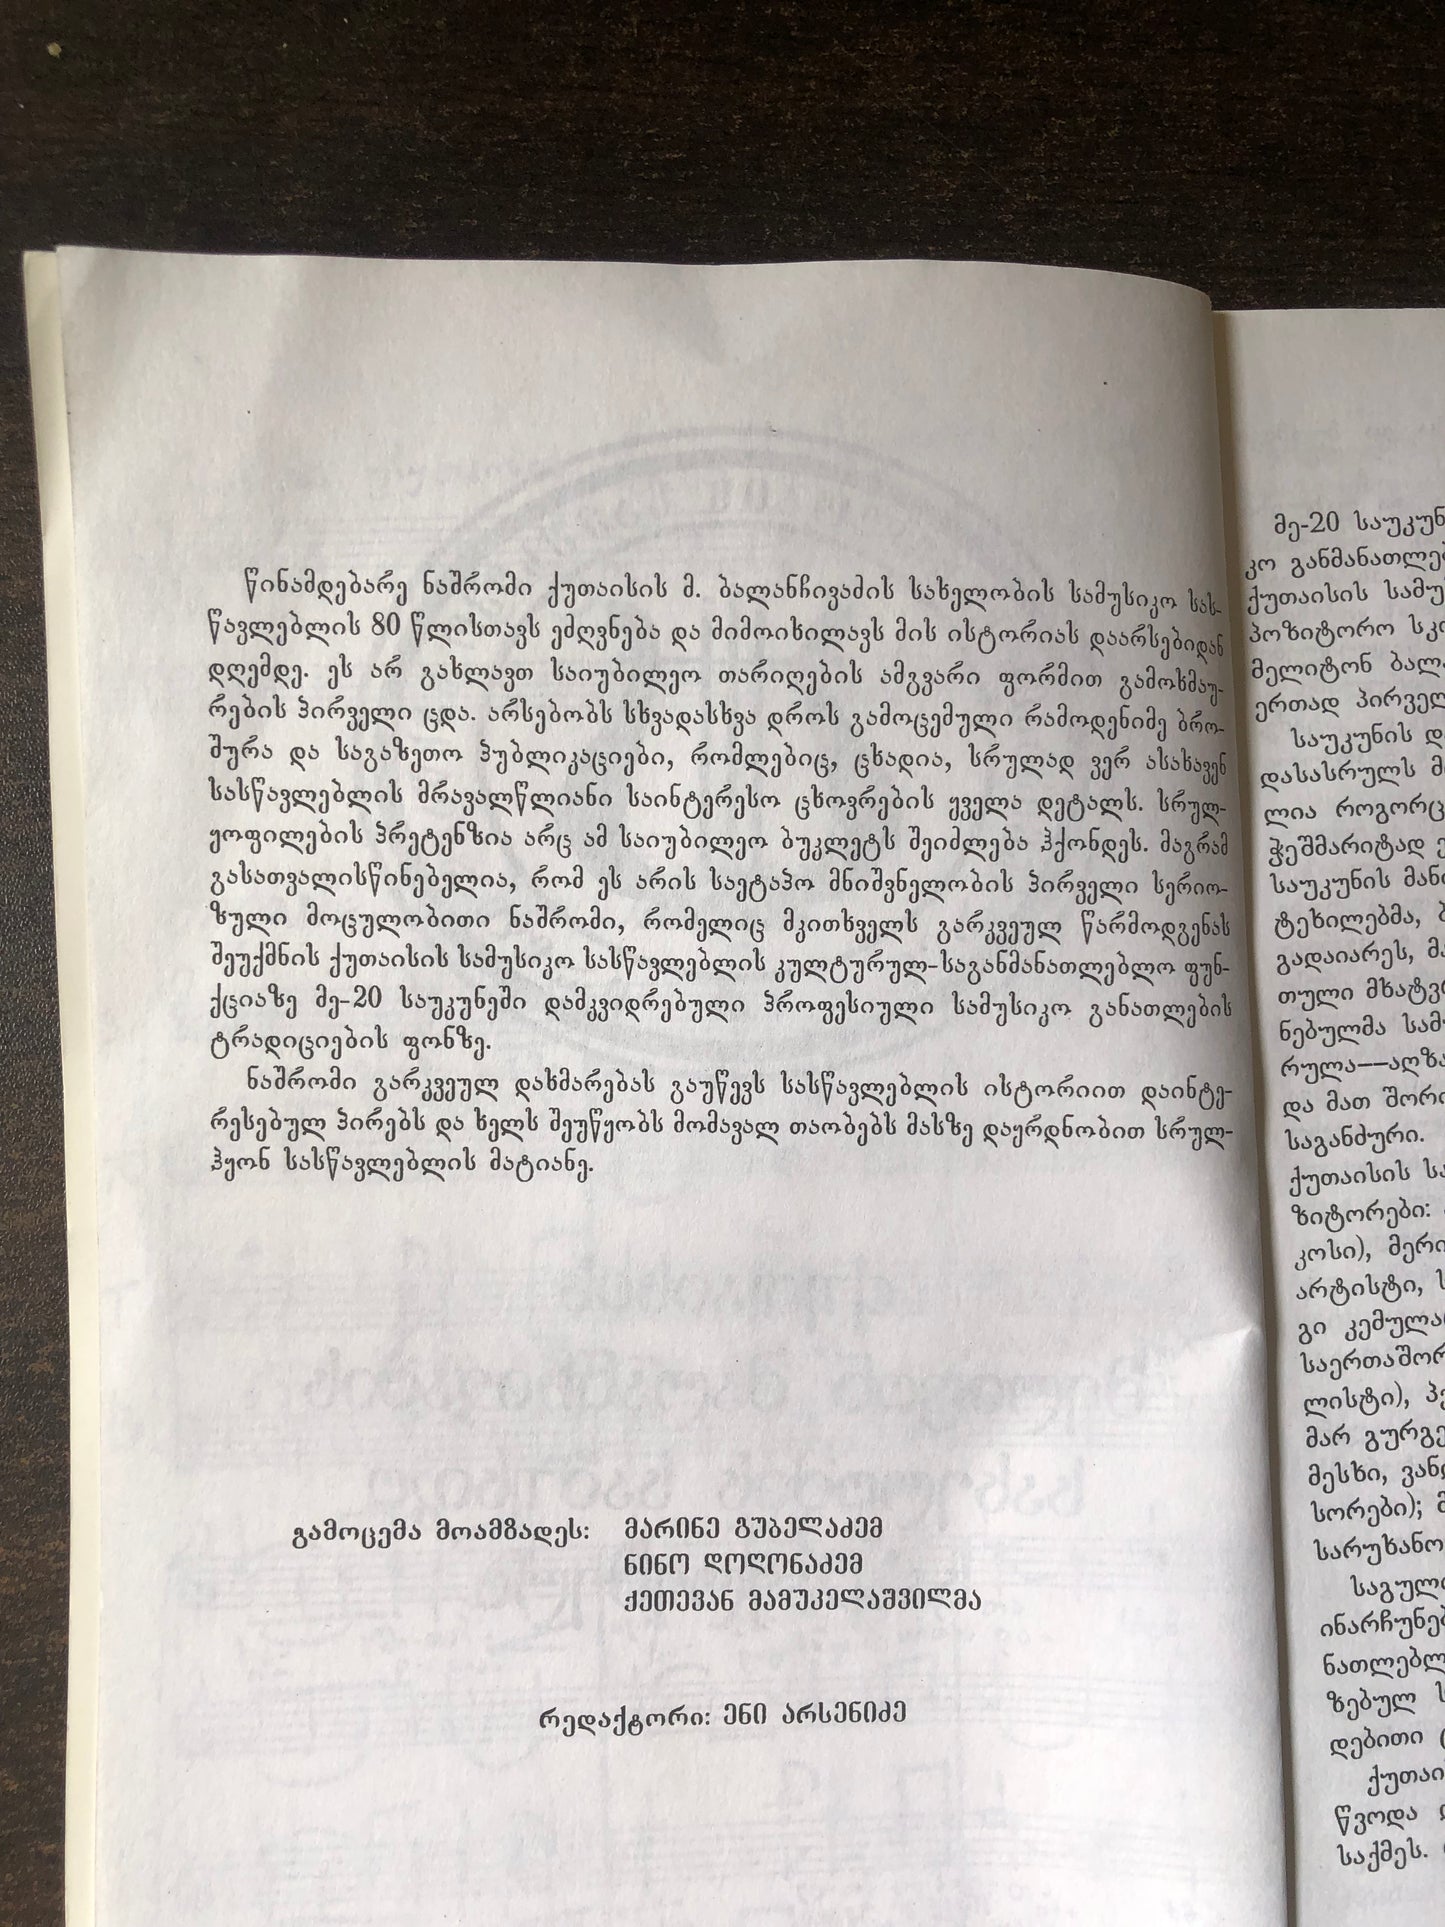 წინამდებარე ნაშრომი ქუთაისის მ. ბალანჩივაძის სახელობის სამუსიკო სას-
წავლებლის 80 წლისთავს ეძღვნება და მიმოიხილავს მის ისტორიას დაარსებიდან
დღემდე. ეს არ გახლავთ საიუბილეო თარიღების ამგვარი ფორმით გამოხმაუ-
რების პირველი ცდა. არსებობს სხვადასხვა დროს გამოცემული რამოდენიმე ბრო-
შურა და საგაზეთო პუბლიკაციები, რომლებიც, ცხადია, სრულად ვერ ასახავენ
სასწავლებლის მრავალწლიანი საინტერესო ცხოვრების ყველა დეტალს. სრულ-
ყოფილების პრეტენზია არც ამ საიუბილეო ბუკლეტს შეიძლება ჰქონდეს. მაგრამ
გასათვალისწინებელია, რომ ეს არის საეტაპო მნიშვნელობის პირველი სერიო-
ზული მოცულობითი ნაშრომი, რომელიც მკითხველს გარკვეულ წარმოდგენას
შეუქმნის ქუთაისის სამუსიკო სასწავლებლის კულტურულ-საგანმანათლებლო ფუნ-
ქციაზე მე-20 საუკუნეში დამკვიდრებული პროფესიული სამუსიკო განათლების
ტრადიციების ფონზე.
ნაშრომი გარკვეულ დახმარებას გაუწევს სასწავლებლის ისტორიით დაინტე-
რესებულ პირებს და ხელს შეუწყობს მომავალ თაობებს მასზე დაყრდნობით სრულ-
ჰყონ სასწავლებლის მატიანე.
გამოცემა მოამზადეს: მარინე გუბელაძემ
ნინო დოღონაძემ
ქეთევან მამუკელაშვილმა
რედაქტორი: ენი არსენიძე
მე-20
კო
ქუთაისის
პოზიტორო
მელიტონ
ერთად
საუკუნის
დასასრულს
ლია როგორც
ჭეშმარიტად
საუკუნის
ტეხილებმა,
გადაიარეს,
თული
ნებულმა
რულა—
და მათ
საგანძური.
ქუთაისის
ზიტორები:
კოსი),
არტისტი,
გი
ლისტი),
მარ
მესხი,
სორები);
ზებულ
დებითი
წვოდა
საქმეს.